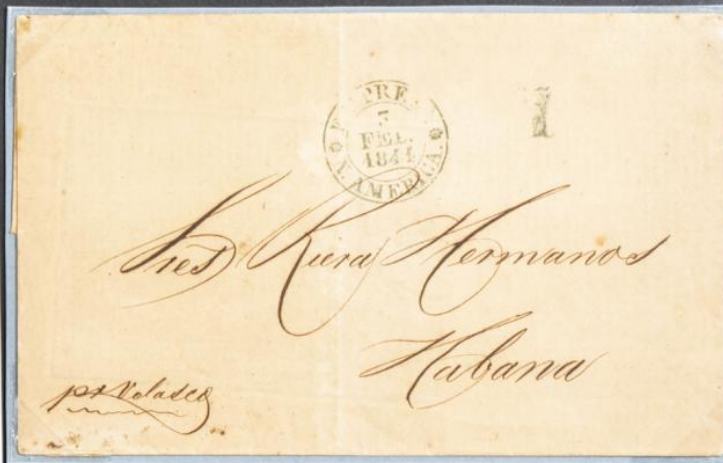 1
3
FEB.
1844
N. AMERICA.
Sres Riera Hermanos
Habana
pr Velasco